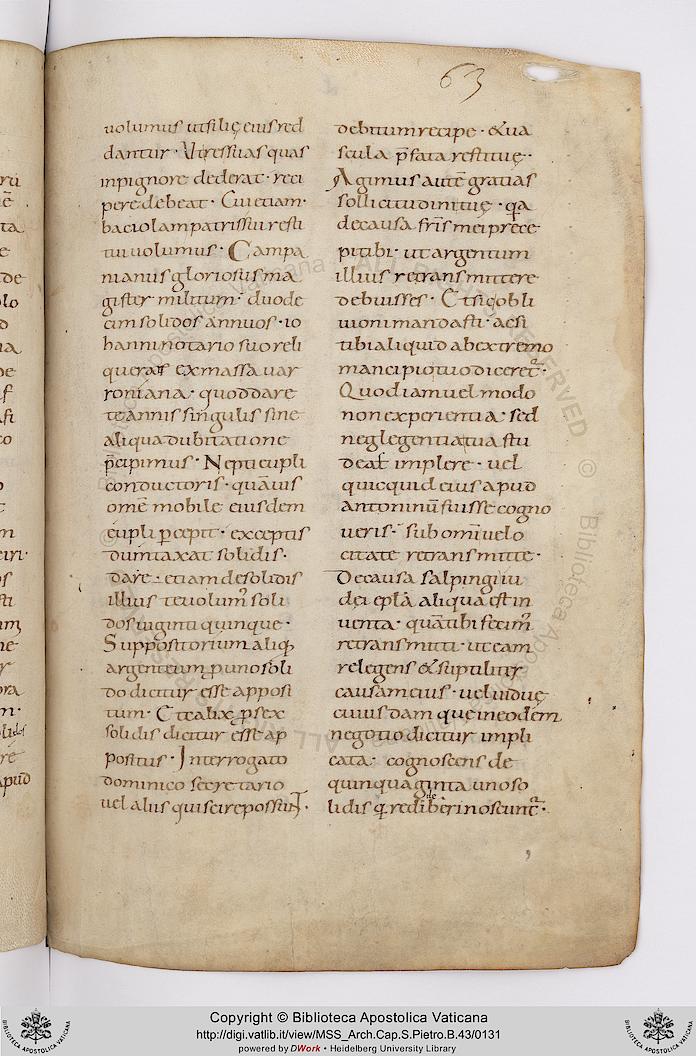 63
uolumus ut filię eius red
dantur · Al tres suas quas
inpignore dederat · reci
pere debeat · Cui etiam ·
baciolam patris sui resti
tui uolumus · Campa
nianus gloriosus ma
gister militum · duode
cim solidos annuos · io
hanni notario suo reli
querat ex massa uar
roniana · quod dare
te annis singulis sine
aliqua dubitatione
p̄cipimus · Nepti cupli
conductoris · quāuis
omē mobile eiusdem
cupli p̲cepit · exceptis
dumtaxat solidis ·
dare · etiam de solidis
illius te uolum̄ soli
dos uiginti quinque ·
Suppositorium aliq;
argenteum p̲ uno soli
do dicitur esse apposi
tum · Et calix p̲ sex
solidis dicitur esse ap
positus · Interrogato
dominico secretario
uel aliis qui scire possunt ·
debitum recipe · & ua
scula p̄fata restituę ·
Agimus autē gratias
sollicitudini tuę · qa
de causa fr̄is mei prece
pi tibi · ut argentum
illius retransmittere
debuisses · Et sic obli
uioni mandasti · ac si
tibi aliquid ab extremo
mancipio tuo diceret̄ ·
Quod iam uel modo
non experientia · sed
neglegentia tua stu
deat implere · uel
quicquid eius apud
antoninū fuisse cogno
ueris · sub omī uelo
citate retransmitte ·
De causa salpingi iu
dei ep̄la aliqua est in
uenta · quā tibi fecim̄
retransmitti · ut eam
relegens & suptiliter
causam eius · uel uiduę
cuiusdam que in eodem
negotio dicitur impli
cata · cognoscens de
quinquaginta uno so
lidis q redi de beri noscunt̄ ·
Copyright © Biblioteca Apostolica Vaticana
http://digi.vatlib.it/view/MSS_Arch.Cap.S.Pietro.B.43/0131
powered by DWork • Heidelberg University Library